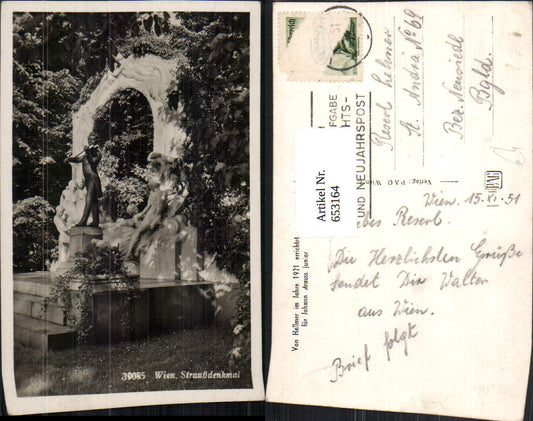 39085 Wien. Straußdenkmal
FGABE
HTS-
UND NEUJAHRSPOST
Reserl Lehner
St. Andrä No 69
Bez. Neusiedl
Bgld.
Verlag: P.A.G. Wien
PAG
Artikel Nr.
653164
Von Hellmer im Jahre 1921 errichtet
für Johann Strauss junior
Wien, 15. XI. 51
Liebes Reserl.
Die Herzlichsten Grüße
sendet Dir Walter
aus Wien.
Brief folgt